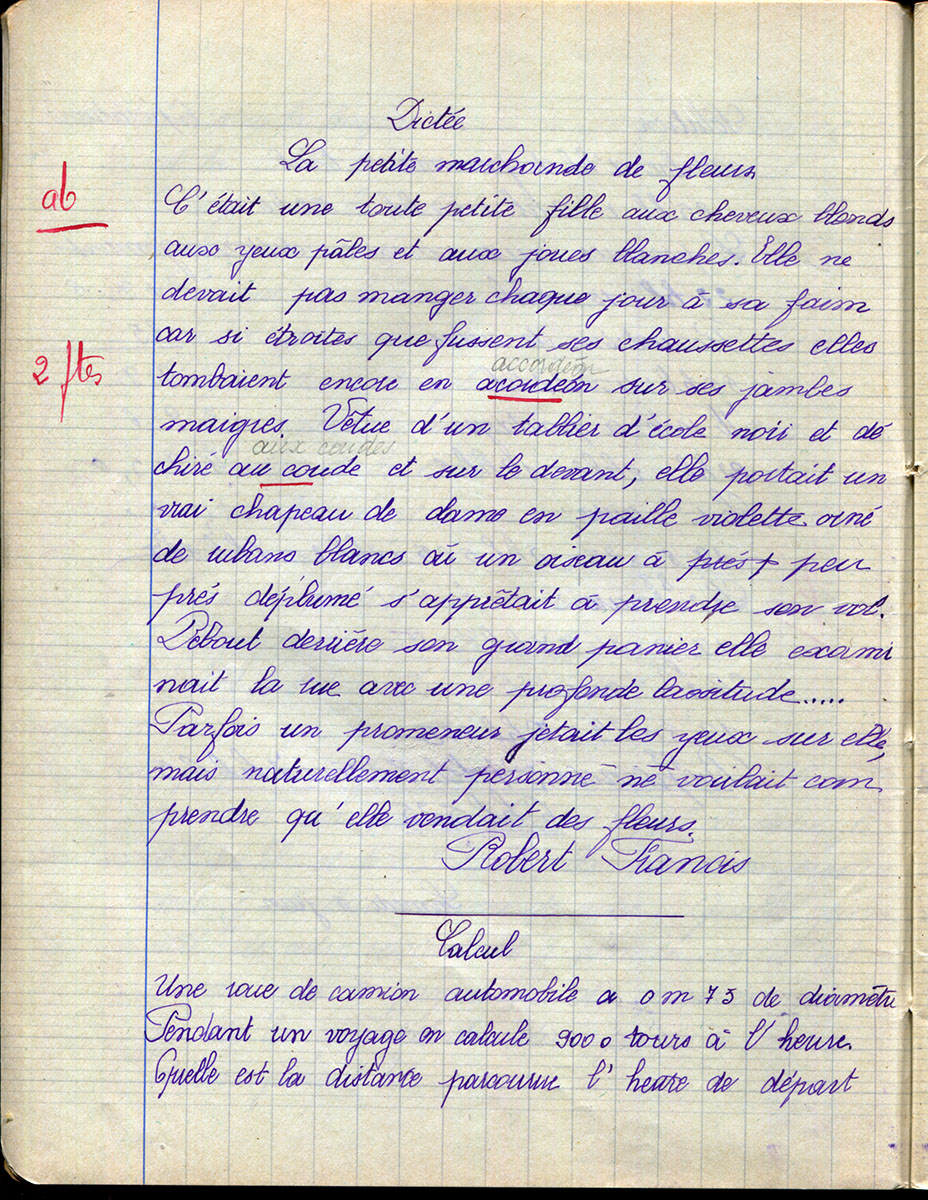 Dictée
La petite marchande de fleurs
ab
C'était une toute petite fille aux cheveux blonds
aux yeux pâles et aux joues blanches. Elle ne
devait pas manger chaque jour à sa faim
car si étroites que fussent ses chaussettes elles
accordéon
2 ftes
tombaient encore en acordéon sur ses jambes
maigres. Vêtue d'un tablier d'école noir et dé
aux coudes
chiré au coude et sur le devant, elle portait un
vrai chapeau de dame en paille violette orné
de rubans blancs où un oiseau à près peu
prés déplumé s'apprêtait à prendre son vol.
Debout derrière son grand panier elle exami
nait la rue avec une profonde lassitude.....
Parfois un promeneur jetait les yeux sur elle,
mais naturellement personne ne voulait com
prendre qu'elle vendait des fleurs.
Robert Francis
Calcul
Une roue de camion automobile a 0 m 75 de diamètre
Pendant un voyage on calcule 9000 tours à l'heure.
Quelle est la distance parcourue l'heure de départ